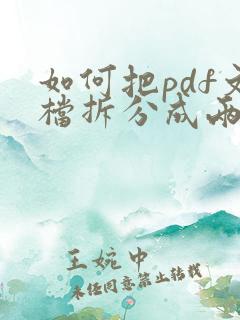 如何把pdf文
檔拆分成兩
王婉中
未经同意禁止转载